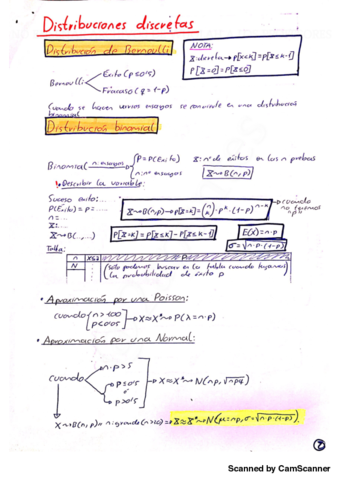 Distribuciones discretas
Distribución de Bernoulli
NOTA:
X: discreta → P[X<k] = P[X≤k-1]
P[X=0] = P[X≤0]
Bernoulli
Éxito (p≤0'5)
Fracaso (q=1-p)
Cuando se hacen varios ensayos se convierte en una distribución
binomial
Distribución binomial
Binomial n: ensayos
p = P(Éxito)
n: nº ensayos
X: nº de éxitos en las n pruebas
X ~ B(n, p)
Describir la variable:
Suceso éxito: ...
P(Éxito) = p = ...
n = ...
X: ...
X ~ B(.., ..)
X ~ B(n,p) → p[X=k] = (n k) · p^k · (1-p)^n-k
cuando
no tenemos
P[X=k] = P[X≤k] - P[X≤k-1]
E(X) = n·p
σ = √n·p·(1-p)
Tabla:
n X≤x P
N
(sólo podemos buscar en la tabla cuando tengamos
la probabilidad de éxito p
• Aproximación por una Poisson:
cuando
n>100
p≤0'05
X ≈ X* ~ P(λ=n·p)
• Aproximación por una Normal:
cuando
n·p>5
p=0'5
p>0'5
X ≈ X* ~ N(np, √npq)
X ~ B(n, p) n: grande (n>20) → X ≈ X* ~ N(μ=np, σ=√n·p·(1-p))
2
Scanned by CamScanner